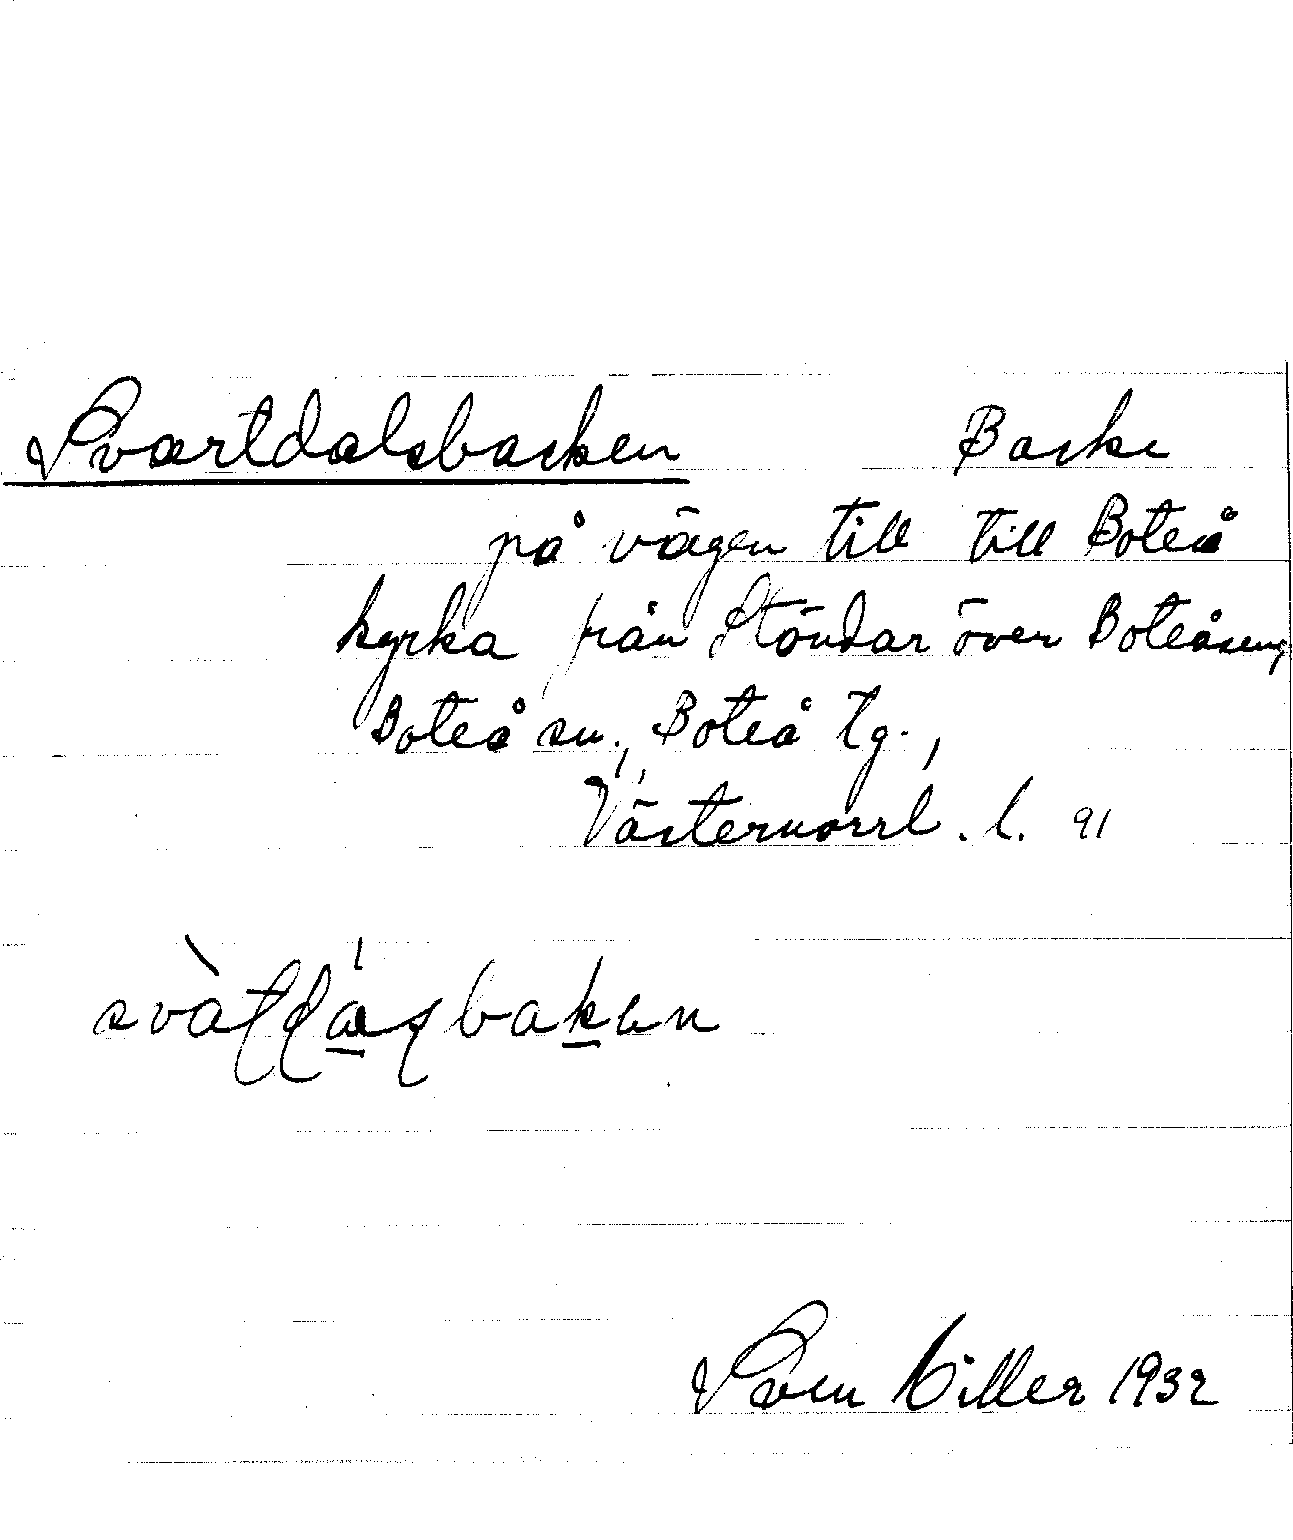 Svartdalsbacken Backe
på vägen till till Boteå
kyrka från Stöndar över Boteåseng
Boteå sn., Boteå tg.,
Västernorrl. l. 91
Sven Hiller 1932